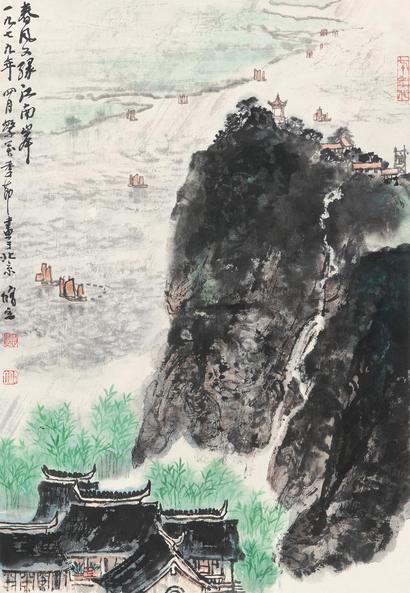 春风又绿江南岸
一九七九年 四月 樱花季节 画于北京